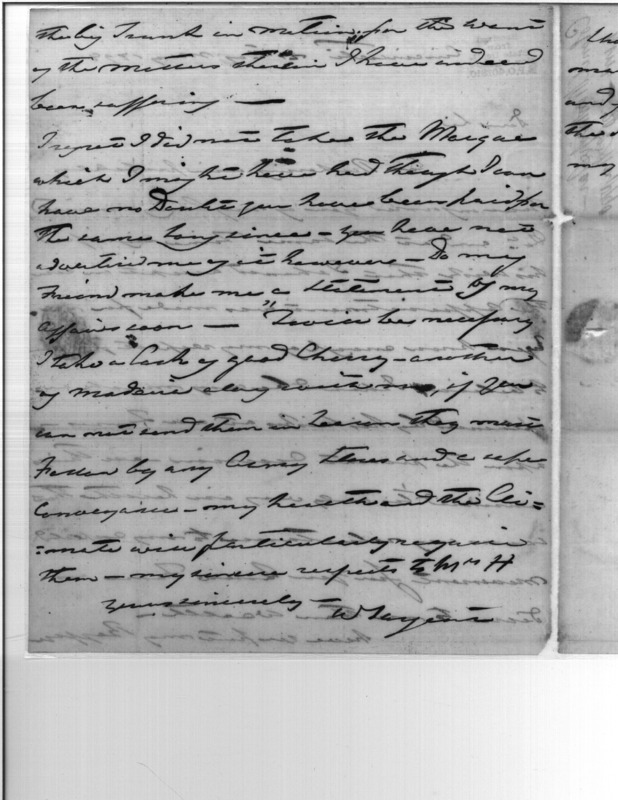 the big Trunk in motion, for the want
of the matters therein I have indeed
been suffering —
I regret I did not take the Marque
which I might have had though I can
have no Doubt you have been paid for
the same long since – you have not
advertised me of it however – Do my
Friend make me a Statement of my
affairs soon — Twill be necessary
I take a Cask of good Sherry – another
of madeira along with me, if you
can not send them in Season they must
Follow by any Convey and a safe
Conveyance – my health and the Cli=
=mate will particularly require
them – my sincere respects to Mrs H
yours sincerely –
W Sargent